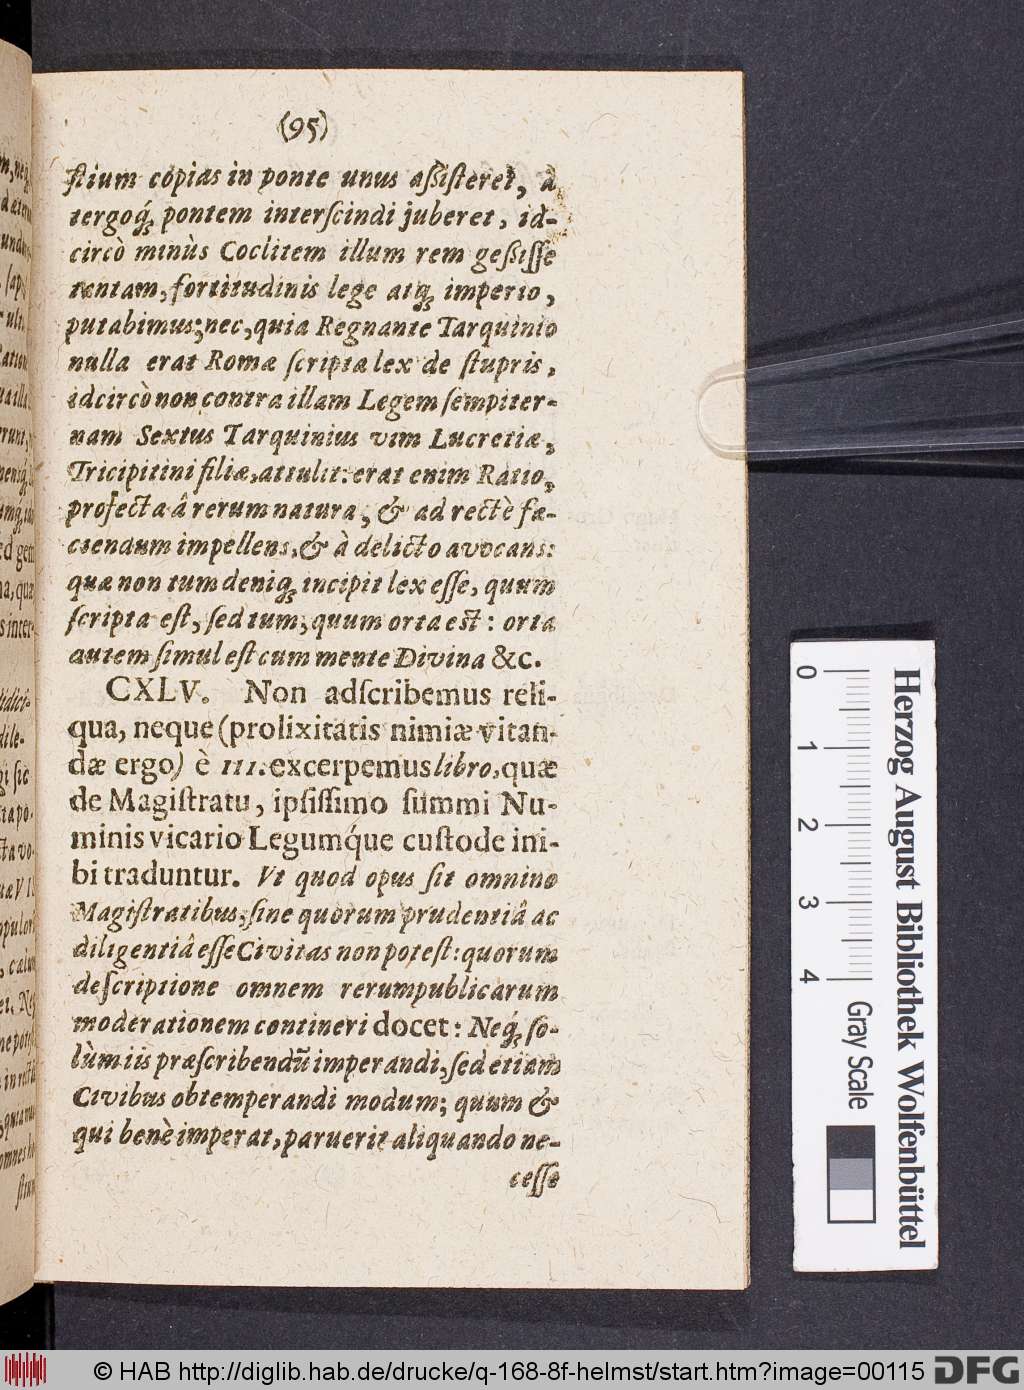 (95)
ſtium copias in ponte unus aßiſteret, à
tergoq́; pontem interſcindi juberet, id-
circò minùs Coclitem illum rem geßiſſe
tantam, fortitudinis lege atq; imperio,
putabimus; nec, quia Regnante Tarquinio
nulla erat Romæ ſcripta lex de ſtupris,
idcircò non contra illam Legem ſempiter-
nam Sextus Tarquinius vim Lucretiæ,
Tricipitini filiæ, attulit: erat enim Ratio,
profecta â rerum natura, & ad rectè fa-
ciendum impellens, & à delicto avocans:
quæ non tum deniq; incipit lex eſſe, quum
ſcripta eſt, ſed tum, quum orta est: orta
autem ſimul eſt cum mente Divina &c.
CXLV. Non adſcribemus reli-
qua, neque (prolixitatis nimiæ vitan-
dæ ergo) è III. excerpemus libro, quæ
de Magiſtratu, ipſiſſimo ſummi Nu-
minis vicario Legumq́ue cuſtode ini-
bi traduntur. Vt quod opus ſit omnino
Magiſtratibus, ſine quorum prudentiâ ac
diligentiâ eſſe Civitas non poteſt: quorum
deſcriptione omnem rerumpublicarum
moderationem contineri docet: Neq́; ſo-
lùm iis præſcribendũ imperandi, ſed etiam
Civibus obtemperandi modum; quum &
qui benè imperat, paruerit aliquando ne-
ceſſe
0 1 2 3 4
Herzog August Bibliothek Wolfenbüttel
Gray Scale
© HAB http://diglib.hab.de/drucke/q-168-8f-helmst/start.htm?image=00115
DFG